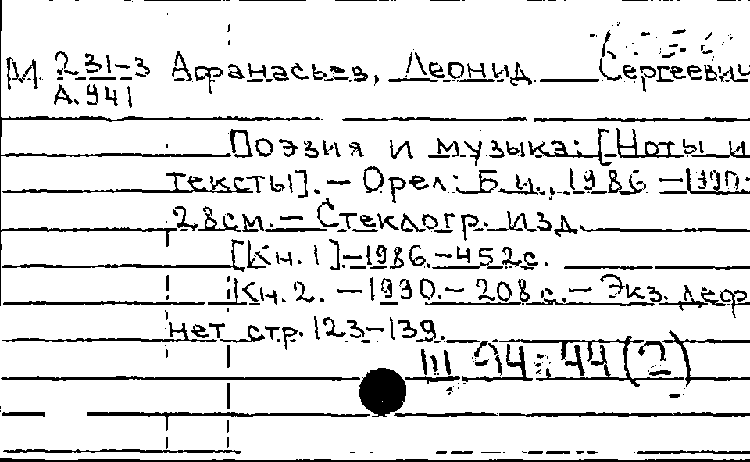 М 231-3 Афанасьев, Леонид Сергеевич
А.941
Поэзия и музыка: [Ноты и
тексты]. — Орел: Б.и., 1986 — 1990.
28см. — Стеклогр. изд.
[Кн. 1] — 1986. — 452с.
Кн. 2. — 1990. — 208 с. — Экз. деф
нет стр. 123-139.
Щ 94 44 (2)